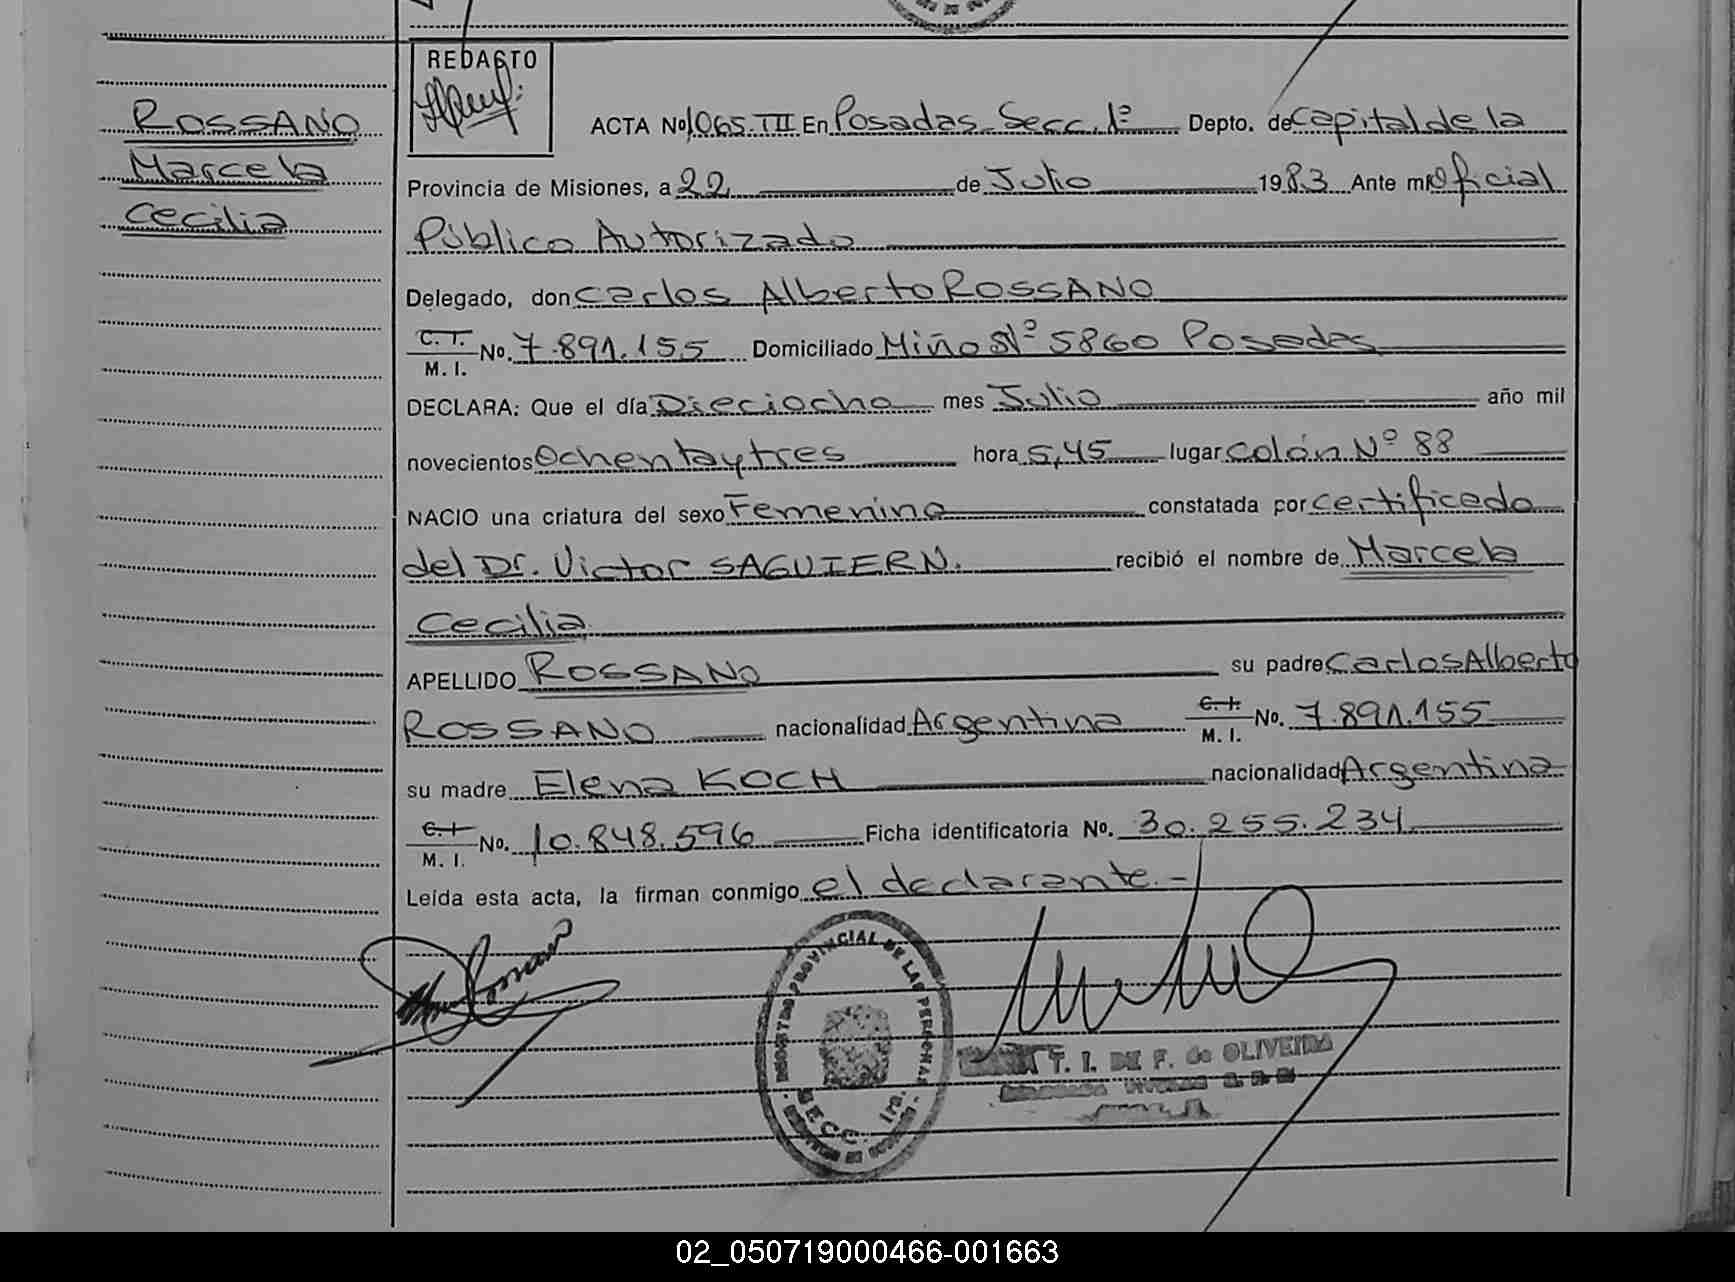 REDACTO
ROSSANO
Marcela
Cecilia
ACTA No 1065. TII En Posadas. Secc. 1ª Depto. de Capital de la
Provincia de Misiones, a 22 de Julio 1983 Ante mi Oficial
Público Autorizado
Delegado, don Carlos Alberto ROSSANO
C. I. M. I. No. 7.891.155 Domiciliado Miño Nº 5860 Posadas
DECLARA: Que el día Dieciocho mes Julio año mil
novecientos Ochentaytres hora 5,45 lugar Colón Nº 88
NACIO una criatura del sexo Femenino constatada por certificado
del Dr. Victor SAGUIERN. recibió el nombre de Marcela
Cecilia
APELLIDO ROSSANO su padre Carlos Alberto
ROSSANO nacionalidad Argentina C. I. M. I. No. 7.891.155
su madre Elena KOCH nacionalidad Argentina
C. I. M. I. No. 10.848.596 Ficha identificatoria No. 30.255.234
Leída esta acta, la firman conmigo el declarante.-
REGISTRO PROVINCIAL DE LAS PERSONAS
SECC. 1ra.
T. I. DE F. de OLIVEIRA
02_050719000466-001663